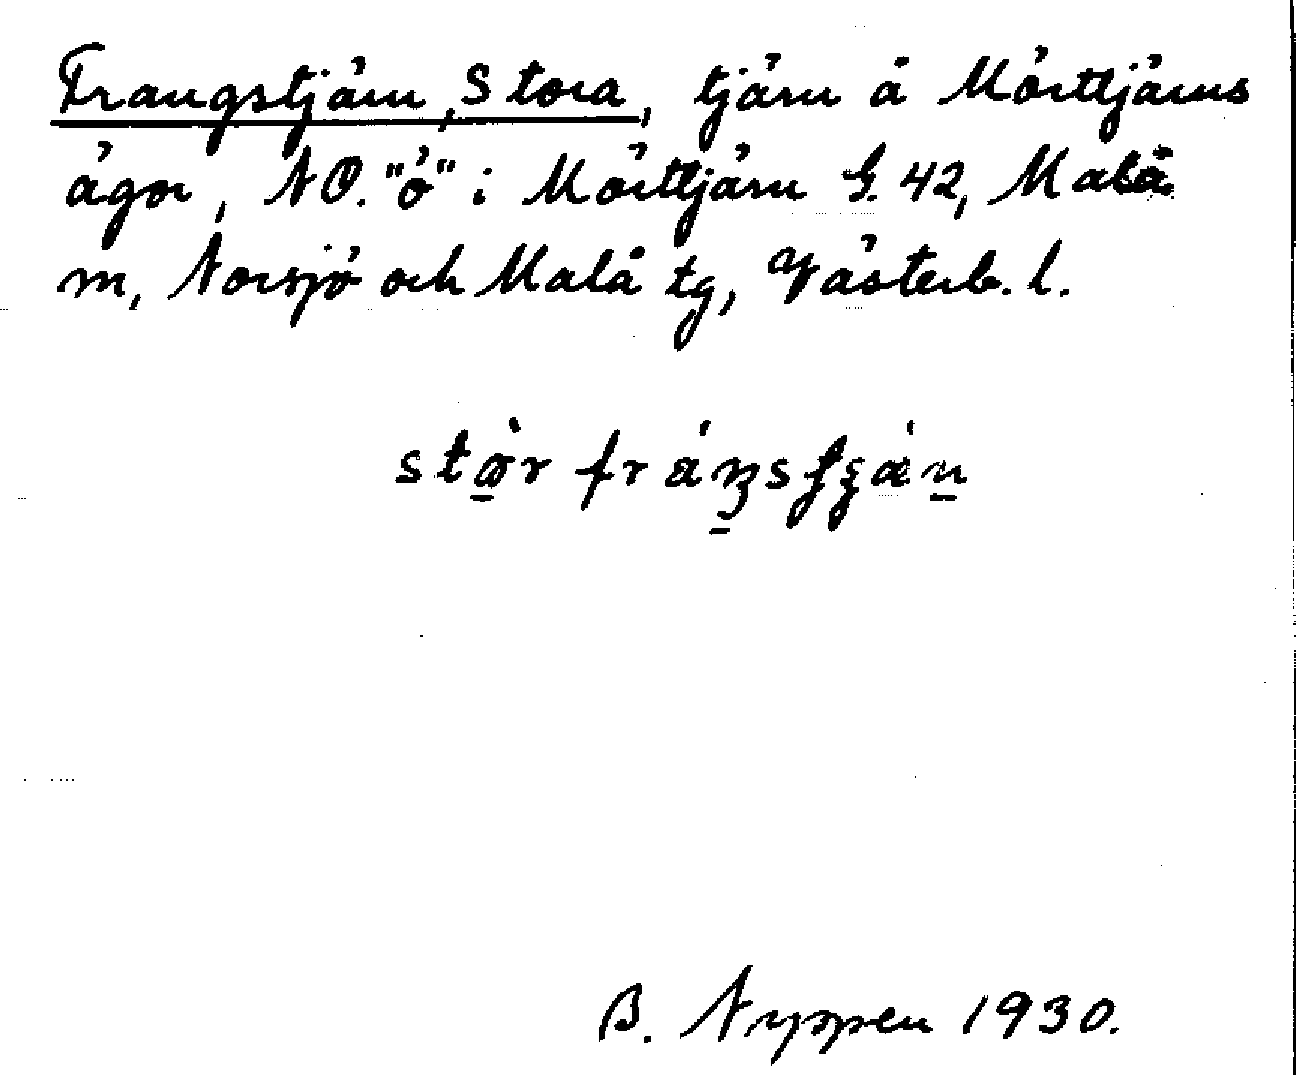 Frangstjärn, Stora, tjärn å Mörttjärns
ägor, NO. "ö" i Mörttjärn G. 42, Malå
m, Norsjö och Malå tg, Västerb. l.
B. Nyppen 1930.